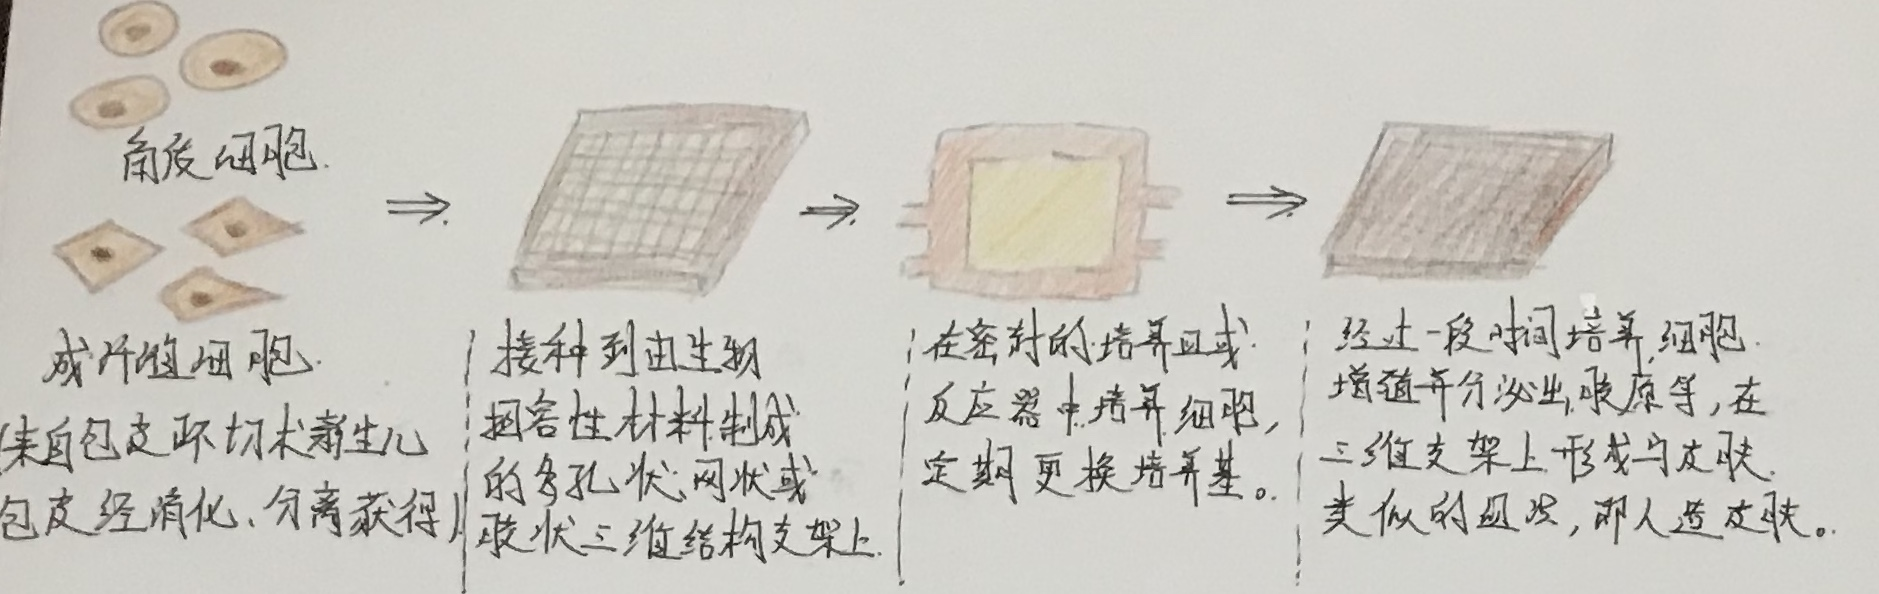 角质细胞.
成纤维细胞.
(来自包皮环切术新生儿
包皮经消化、分离获得)
接种到由生物
相容性材料制成
的多孔状.网状或
胶状三维结构支架上.
在密封的培养皿或
反应器中培养细胞,
定期更换培养基。
经过一段时间培养,细胞
增殖并分泌出胶原等,在
三维支架上形成与皮肤
类似的层次,即人造皮肤。